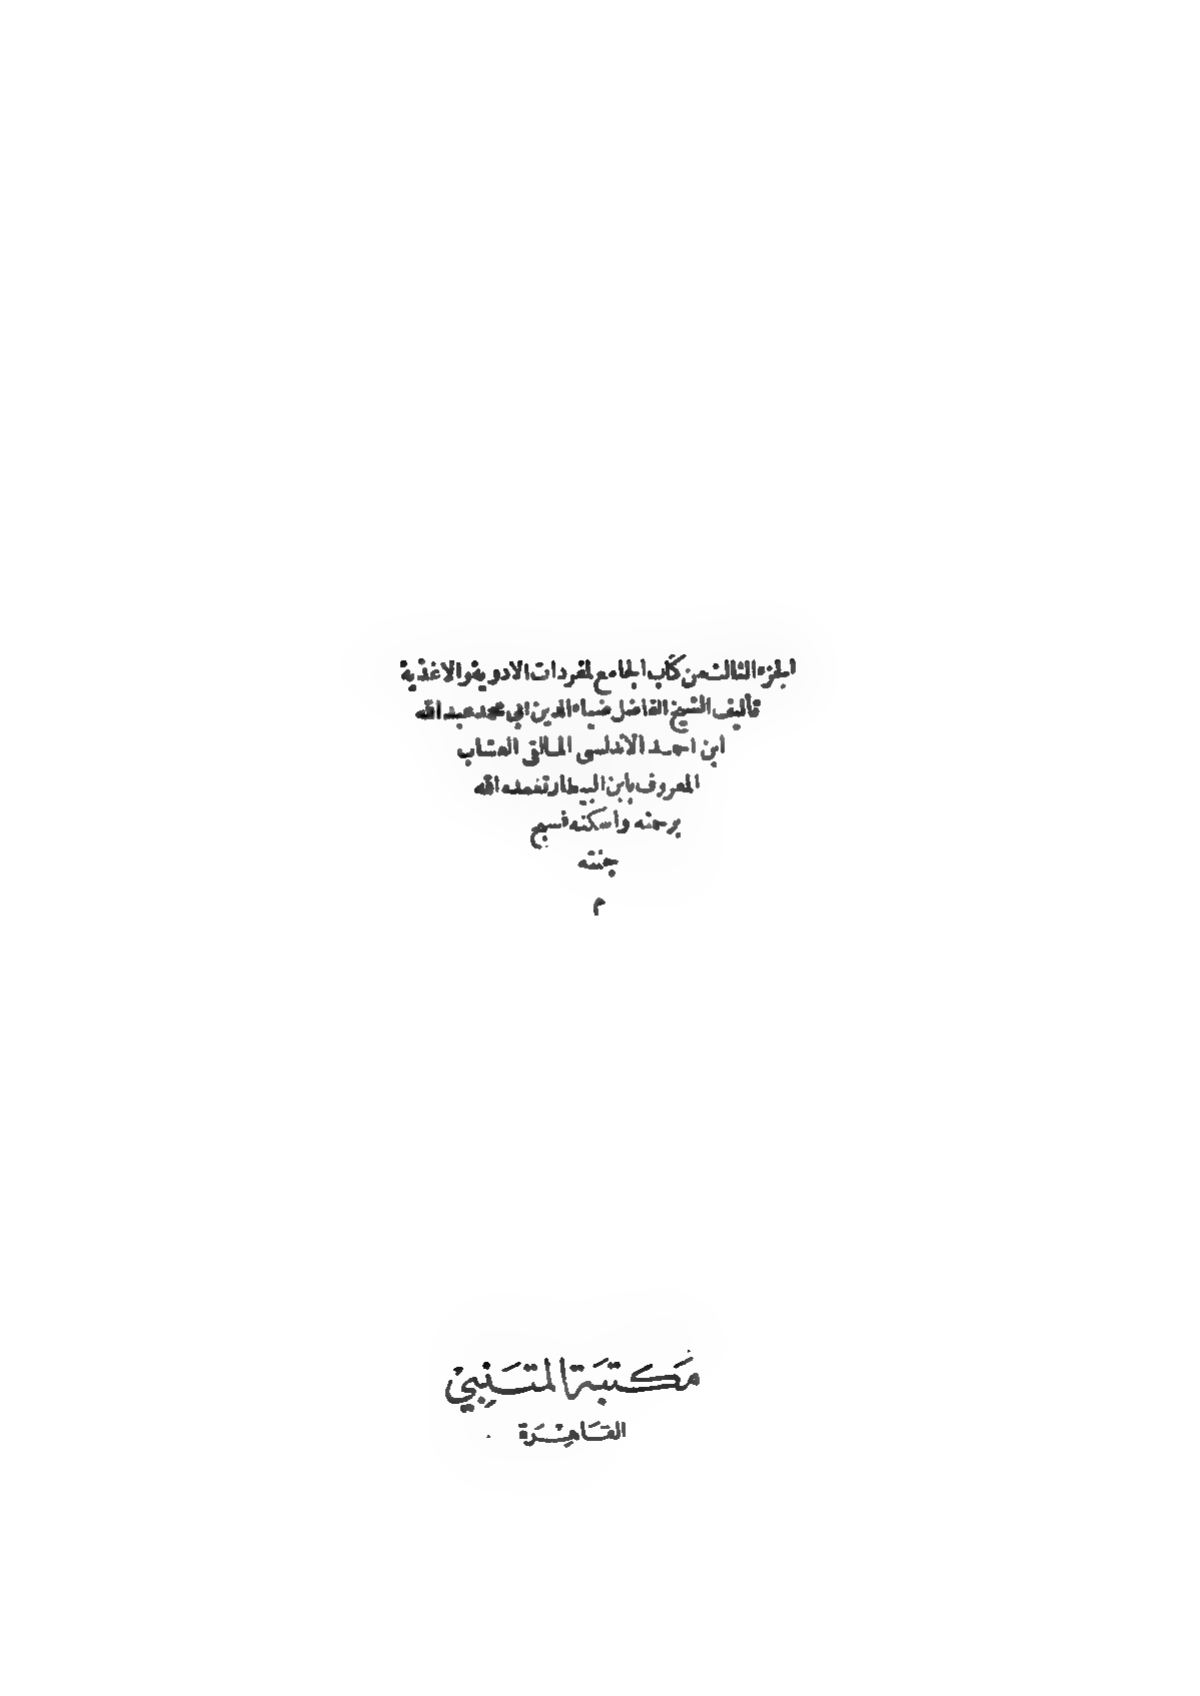 الجزء الثالث من كتاب الجامع لمفردات الادوية والاغذية
تأليف الشيخ الفاضل ضياء الدين ابي محمد عبد الله
ابن احمد الاندلسى المالقى العشاب
المعروف بابن البيطار تغمده الله
برحمته واسكنه فسيح
جنته
م
مَكتبَة المتَنِبيْ
القَاهِرَة